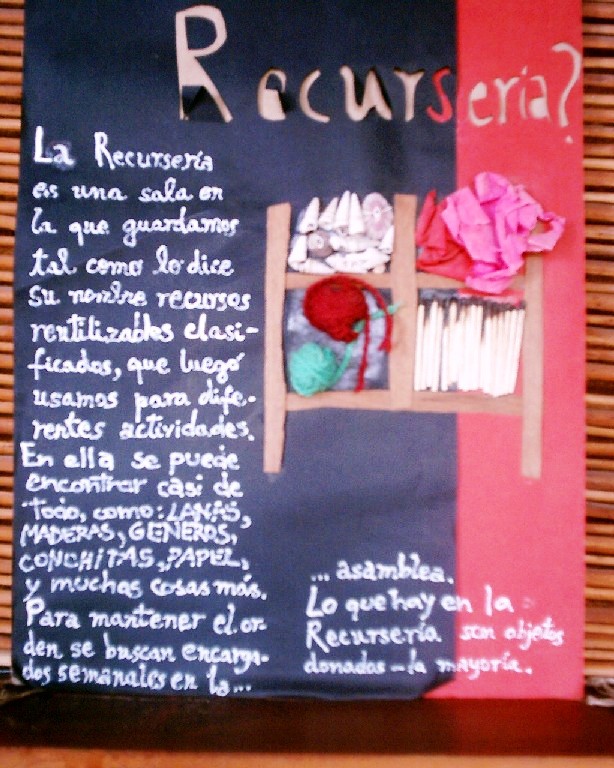 Recursería?
La Recursería
es una sala en
la que guardamos
tal como lo dice
su nombre recursos
reutilizables clasi-
ficados, que luego
usamos para dife-
rentes actividades.
En ella se puede
encontrar casi de
todo, como: LANAS,
MADERAS, GENEROS,
CONCHITAS, PAPEL,
y muchas cosas más.
Para mantener el or-
den se buscan encarga-
dos semanales en la...
... asamblea.
Lo que hay en la
Recursería son objetos
donados - la mayoría.